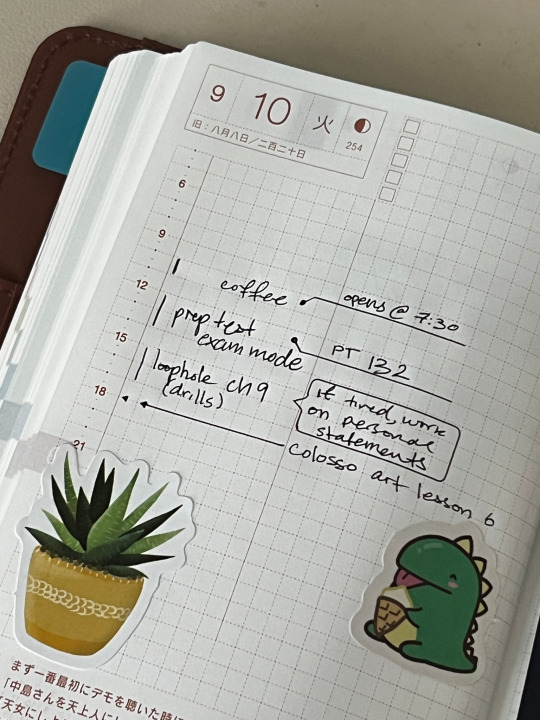 9 10 火
254
旧:八月八日/二百二十日
6
9
12
15
18
21
coffee
opens @ 7:30
prep test
exam mode
PT 132
loophole ch 9
(drills)
if tired, work
on personal
statements
colosso art lesson 6
まず一番最初にデモを聴いた時に
「中島さんを天上人に